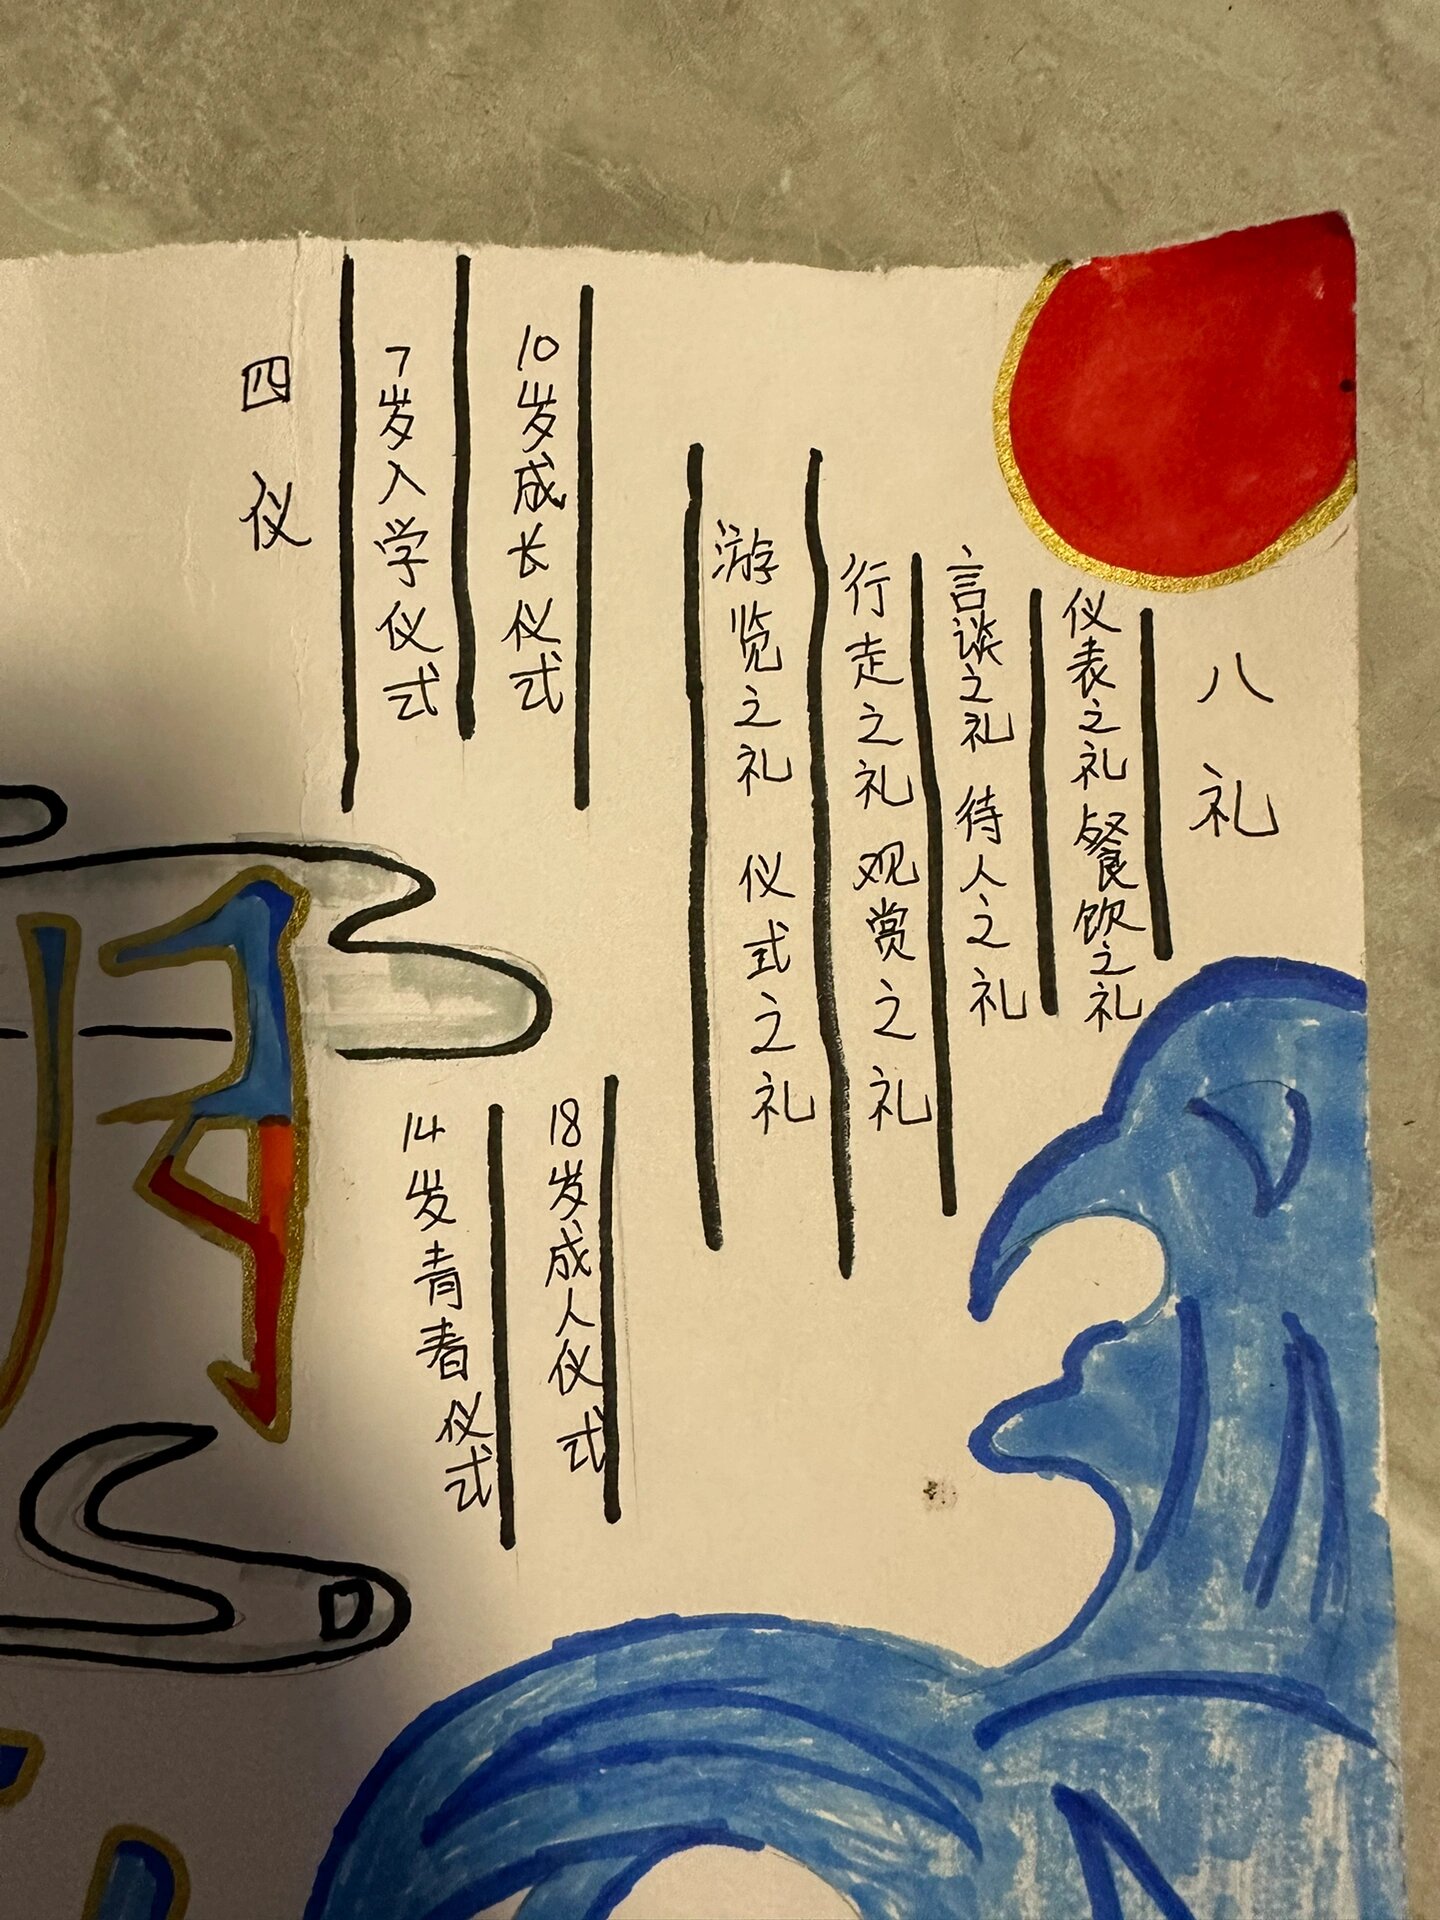 八礼
仪表之礼 餐饮之礼
言谈之礼 待人之礼
行走之礼 观赏之礼
游览之礼 仪式之礼
四仪
7岁入学仪式
10岁成长仪式
14岁青春仪式
18岁成人仪式